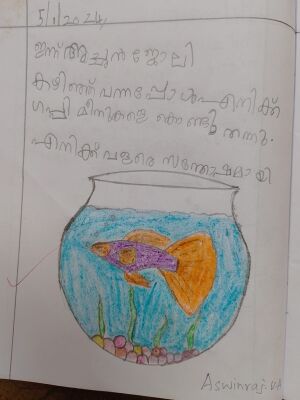 5/1/2024
ഇന്ന് അച്ഛൻ ജോലി
കഴിഞ്ഞ് വന്നപ്പോൾ എനിക്ക്
ഗപ്പി മീനുകളെ കൊണ്ടു തന്നു.
എനിക്ക് വളരെ സന്തോഷമായി
Aswinraj. V.A